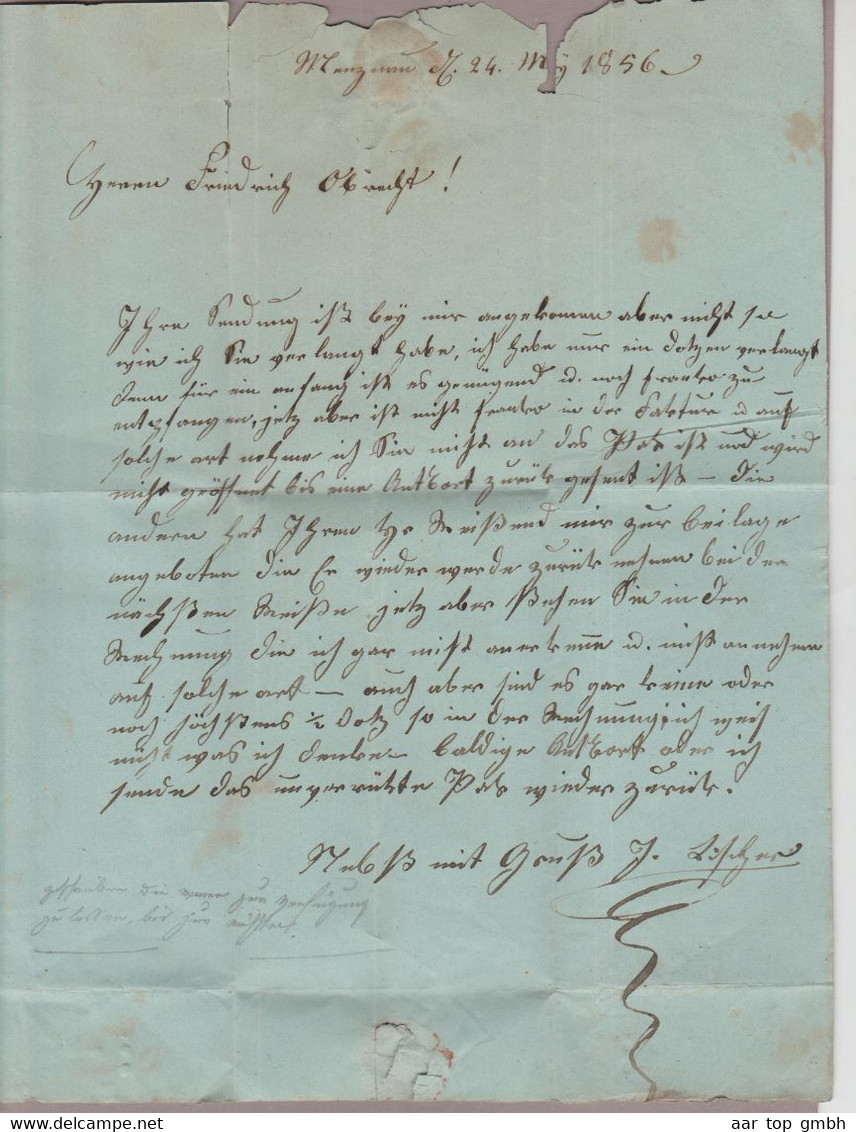 Menznau d. 24. May 1856.
Herrn Friedrich Obrecht!
Ihre Sendung ist bey mir angekomen aber nicht so
wie ich Sie verlangt habe, ich habe nur ein Dotzen verlangt
denn für ein anfang ist es genügend u. noch franko zu
entpfangen, jetz aber ist nicht franko in der Faktur u auf
solche art nehme ich Sie nicht an das Pak ist und wird
nicht geöffnet bis eine Antwort zurük gesent ist – die
andern hat Ihren Hr Reißend mir zur beilage
angeboten die Er wieder werde zurük nehmen bei der
nächsten Reise jetz aber stehen Sie in der
Rechnung die ich gar nicht anerkenne u. nicht annehme
auf solche art – auch aber sind es gar keine oder
noch höchstens 1/2 Dotz so in der Rechnung, ich weis
nicht was ich denke – baldige Antwort oder ich
sende das unverrükte Pak wieder zurük.
Nebst mit Gruß J.
die zur verfügung
zu lassen, bis zur
aar top gmbh